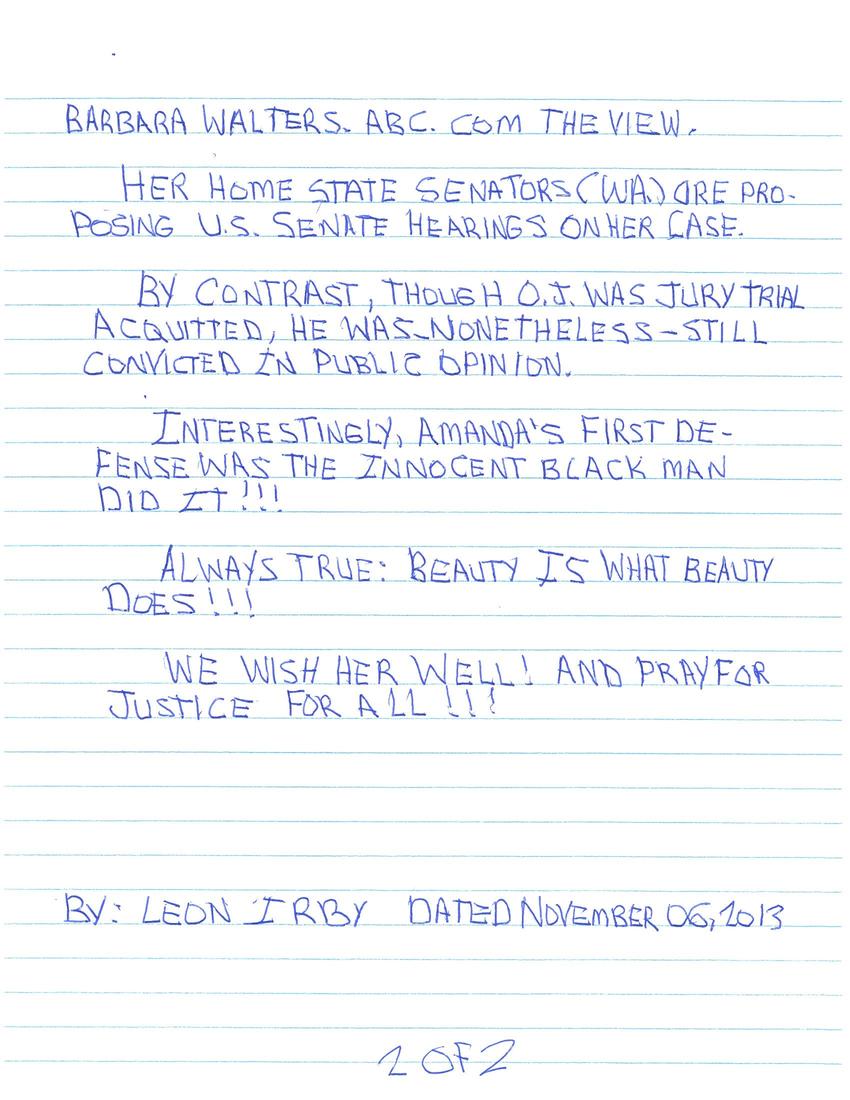 BARBARA WALTERS. ABC. COM THE VIEW.
HER HOME STATE SENATORS (WA.) ARE PRO-
POSING U.S. SENATE HEARINGS ON HER CASE.
BY CONTRAST, THOUGH O.J. WAS JURY TRIAL
ACQUITTED, HE WAS-NONETHELESS-STILL
CONVICTED IN PUBLIC OPINION.
INTERESTINGLY, AMANDA'S FIRST DE-
FENSE WAS THE INNOCENT BLACK MAN
DID IT!!!
ALWAYS TRUE: BEAUTY IS WHAT BEAUTY
DOES!!!
WE WISH HER WELL! AND PRAY FOR
JUSTICE FOR ALL!!!
BY: LEON IRBY DATED NOVEMBER 06, 2013
2 OF 2